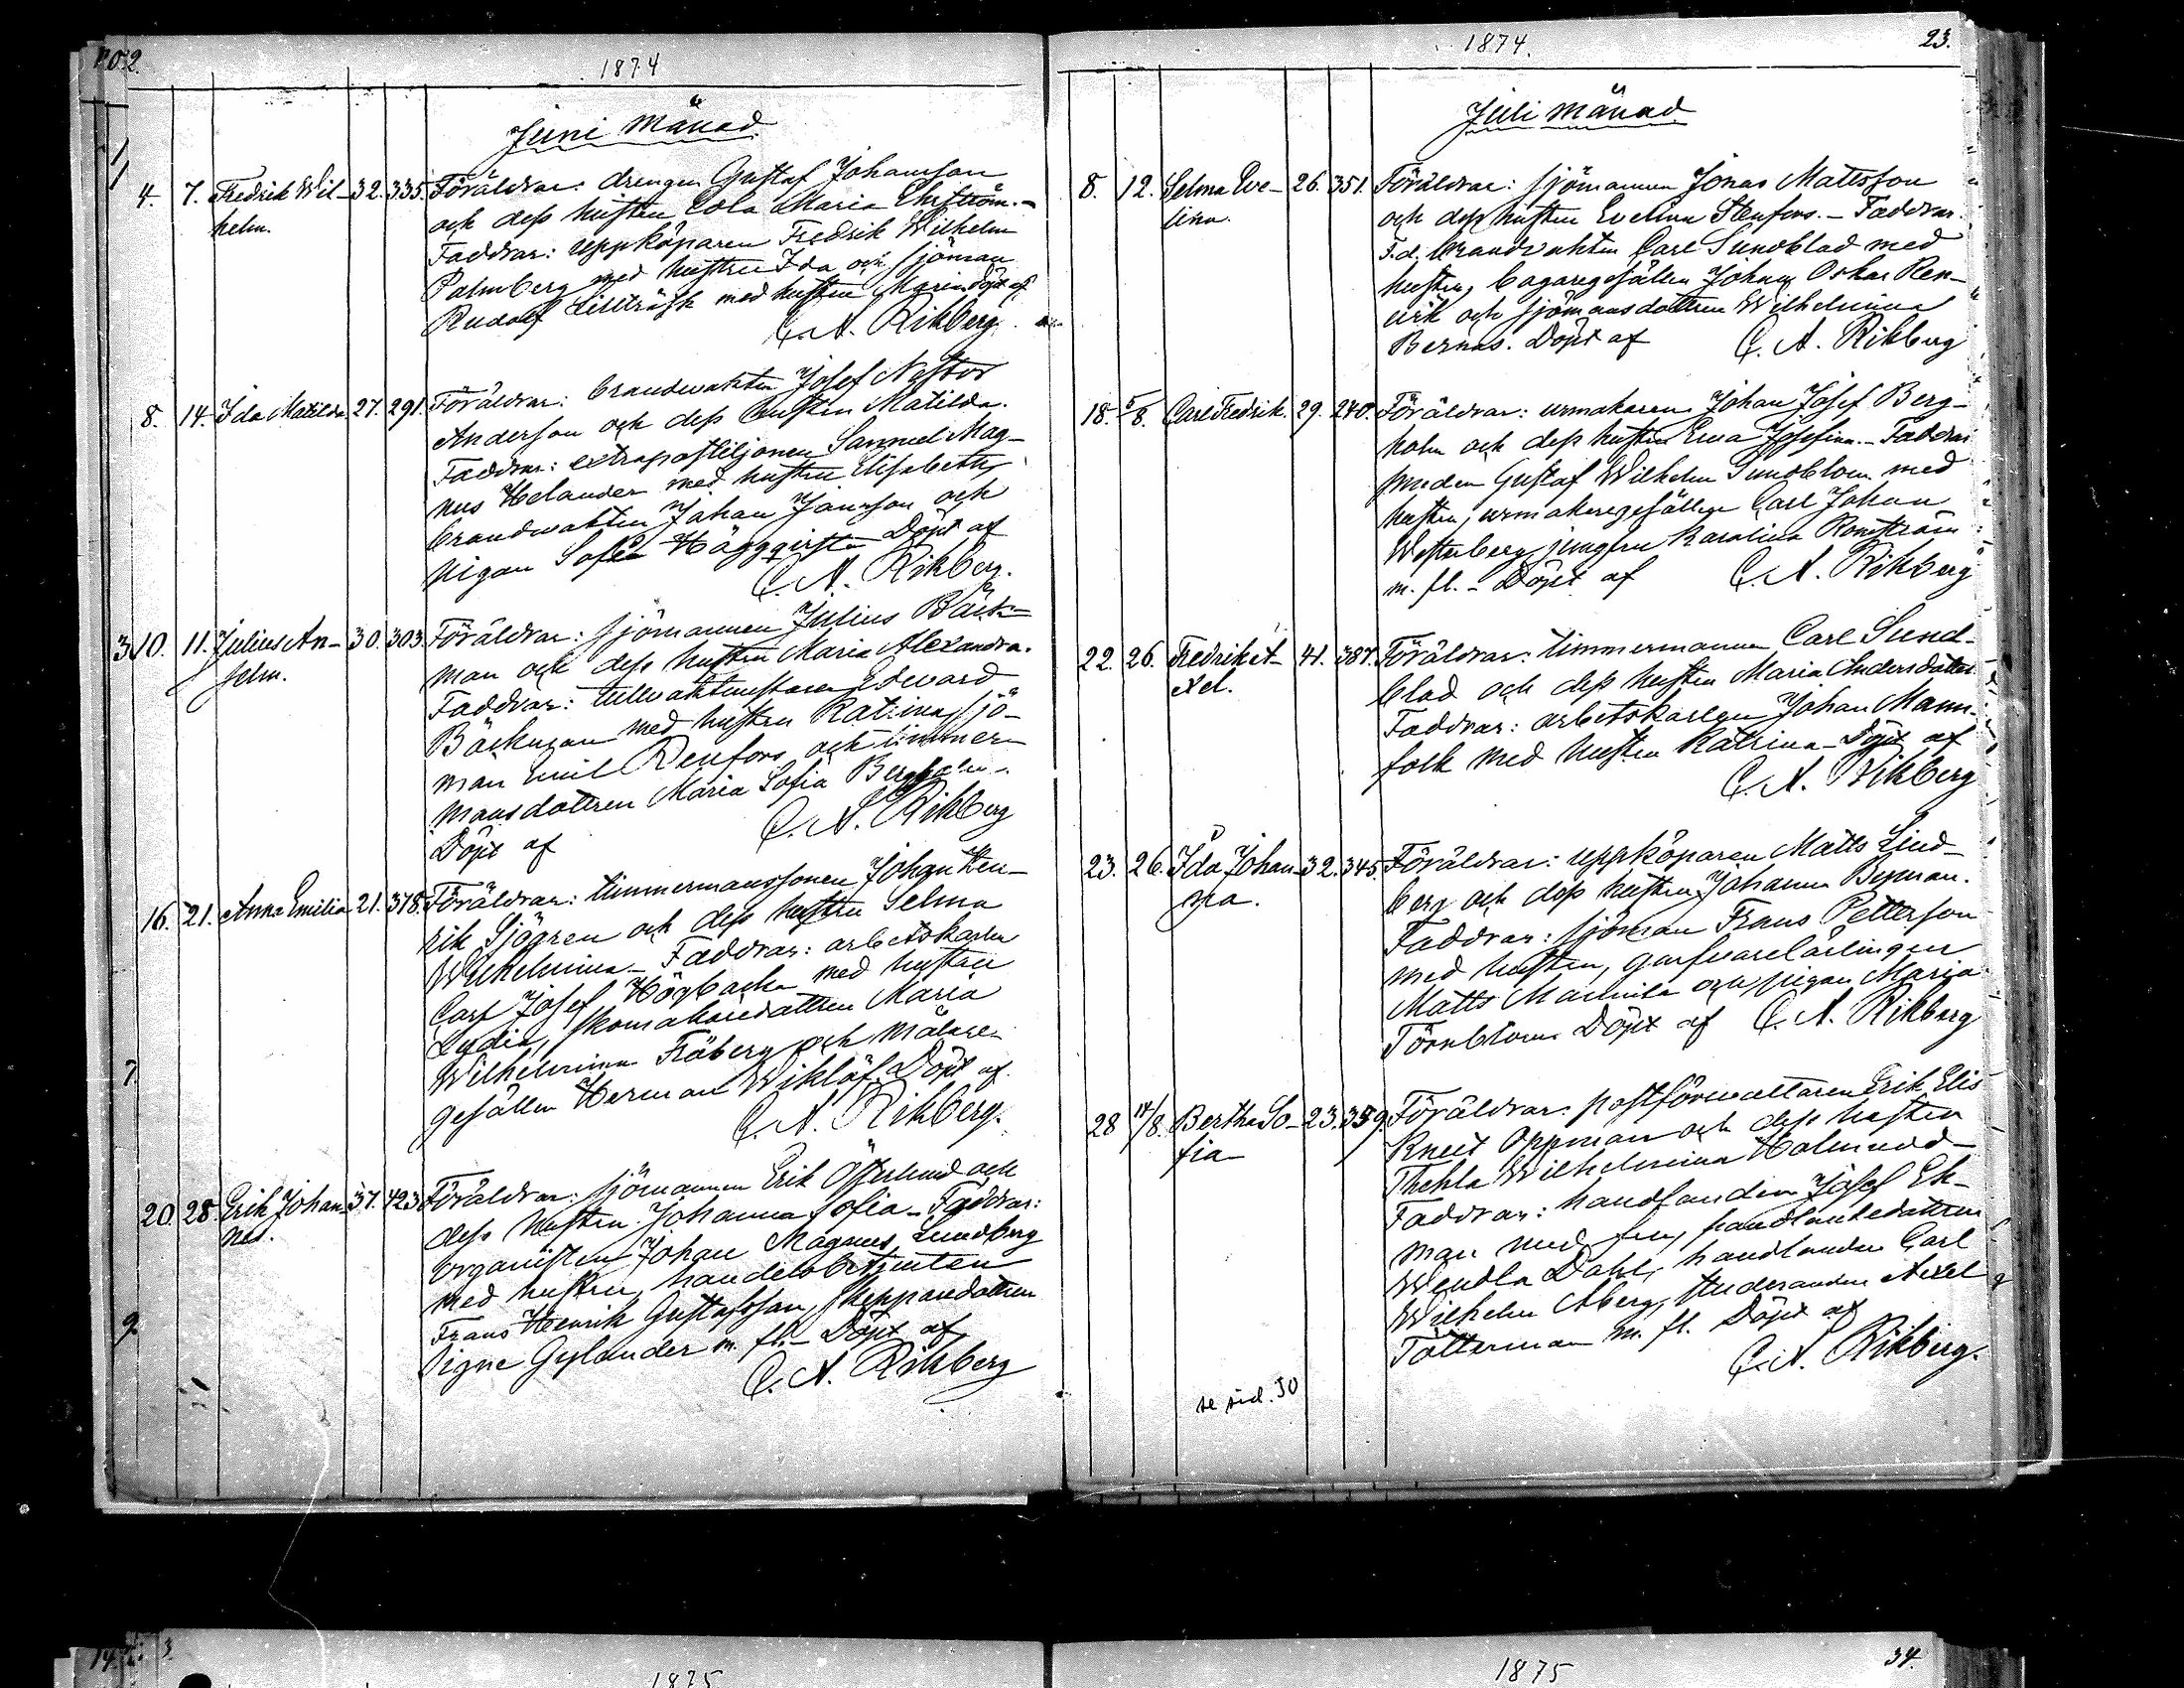 1874
Juni månad
4. 7. Fredrik Wil- 32. 335. Föräldrar: drengen Gustaf Johansson
helm. och dess hustru Lola Maria Ehrström.-
Faddrar: uppköparen Fredrik Wilhelm
Palmberg med hustru Ida och sjöman
Rudolf Lillträsk med hustru Maria Döpt af
C. A. Rikberg.
8. 14. Ida Matilda 27. 291. Föräldrar: brandvakten Josef Nestor
Anderson och dess hustru Matilda.
Faddrar: extrapostiljonen Samuel Mag-
nus Helander med hustru Elisabeth,
brandvakten Johan Jannsson och
pigan Sofia Häggqvist Döpt af
C. A. Rikberg.
10. 11. Julius An- 30. 303. Föräldrar: sjömannen Julius Bäck-
selm. man och dess hustru Maria Alexandra.
Faddrar: tullvaktmästaren Edward
Bäckman med hustru Katrina, sjö-
man Emil Renfors och timmer-
mansdottren Maria Sofia Bergholm.
Döpt af C. A. Rikberg
16. 21. Anna Emilia 21. 378. Föräldrar: timmermanssonen Johan Hen-
rik Sjögren och dess hustru Selma
Wilhelmina - Faddrar: arbetskarlen
Carl Josef Högbacka med hustru
Lydia, skomakaredottren Maria
Wilhelmina Fröberg och målare-
gesällen Herman Wiklöf. Döpt af
C. A. Rikberg.
20. 28. Erik Johan- 37. 423. Föräldrar: sjömannen Erik Österlund och
nes. dess hustru Johanna Sofia - Faddrar:
Organisten Johan Magnus Lundberg
med hustru, handelsbetjenten
Frans Henrik Gustafsson, skepparedottren
Signe Gylander m. fl. - Döpt af
C. A. Rikberg
1874. 23.
Juli månad
8. 12. Selma Eve- 26. 351. Föräldrar: sjömannen Jonas Mattsson
lina. och dess hustru Evelina Stenfors. - Faddrar:
F.d. brandvakten Carl Sundblad med
hustru, bagaregesällen Johan Oskar Ren-
och sjömansdottren Wilhelmina
Bernas. Döpt af C. A. Rikberg
18. 5/8. Carl Fredrik. 29. 240. Föräldrar: urmakaren Johan Josef Berg-
holm och dess hustru Ewa Josefina. - Faddrar
smeden Gustaf Wilhelm Sundblom med
hustru, urmakaregesällen Carl Johan
Westerberg, jungfru Karolina Ronström
m. fl. - Döpt af C. A. Rikberg
22. 26. Fredrik A- 41. 387. Föräldrar: timmermannen Carl Sund-
xel. blad och dess hustru Maria Andersdotter.
Faddrar: arbetskarlen Johan Mann-
folk med hustru Katrina - Döpt af
C. A. Rikberg
23. 26. Ida Johan- 32. 345. Föräldrar: uppköparen Matts Lind-
na. berg och dess hustru Johanna Byman.
Faddrar: sjöman Frans Petterson
med hustru, garfvarelärlingen
Matts och pigan Maria
Törnblom Döpt af C. A. Rikberg
28 14/8. Bertha So- 23. 359. Föräldrar: postförvaltaren Erik Elis
fia Knut Oppman och dess hustru
Thekla Wilhelmina Holmudd
Faddrar: handlanden Josef Ek-
man med fru, handlandedottren
Wendla Dahl, handlanden Carl
Wilhelm Åberg, studeranden Axel
Totterman m. fl. Döpt af
C. A. Rikberg.
se sid. 50
1875
1875 34.